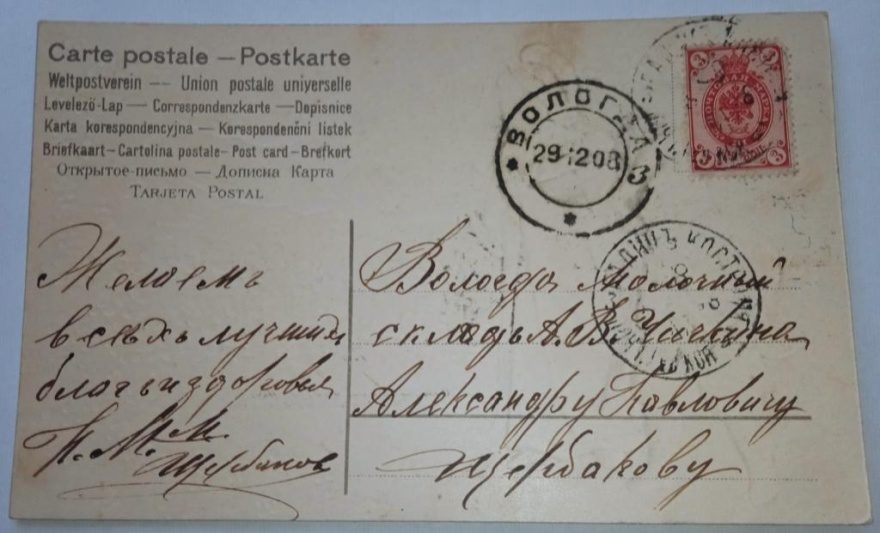 Carte postale — Postkarte
Weltpostverein — Union postale universelle
Levelező-Lap — Correspondenzkarte — Dopisnice
Karta korespondencyjna — Korespondenční listek
Briefkaart - Cartolina postale - Post card - Brefkort
Открытое-письмо — Дописна Карта
TARJETA POSTAL
ВОЛОГДА
29 12 08
3
3 3
3 3
КОСТРОМ
Желаемъ
всѣхъ лучшихъ
благъ и здоровья
Н. М. М.
Щербаков
Вологда Молочный
складъ А. В.
Александру Павловичу
Щербакову